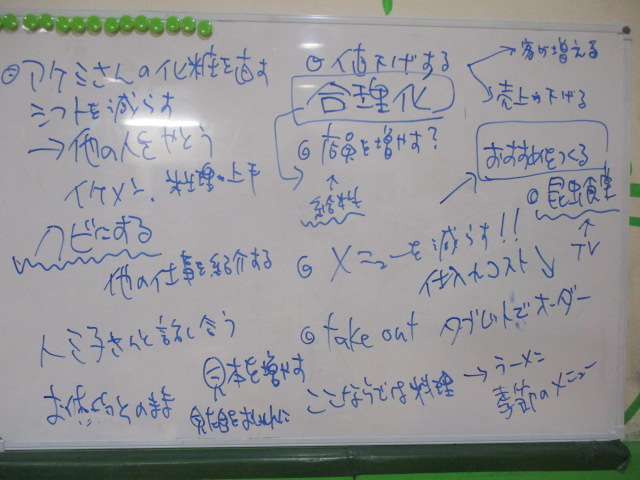 アケミさんの化粧を直す
シフトを減らす
→他の人をやとう
イケメン、料理の上手
クビにする
他の仕事を紹介する
トミ子さんと話し合う
お体
値下げする
客が増える
売上が下げる
合理化
店員を増やす?
↑
給料
おすすめをつくる
昆虫食堂
↑
TV
メニューを減らす!!
仕入れコスト↘
take out タブレットでオーダー
見本を増やす
見た目を
ここならでは料理
→ラーメン
季節のメニュー